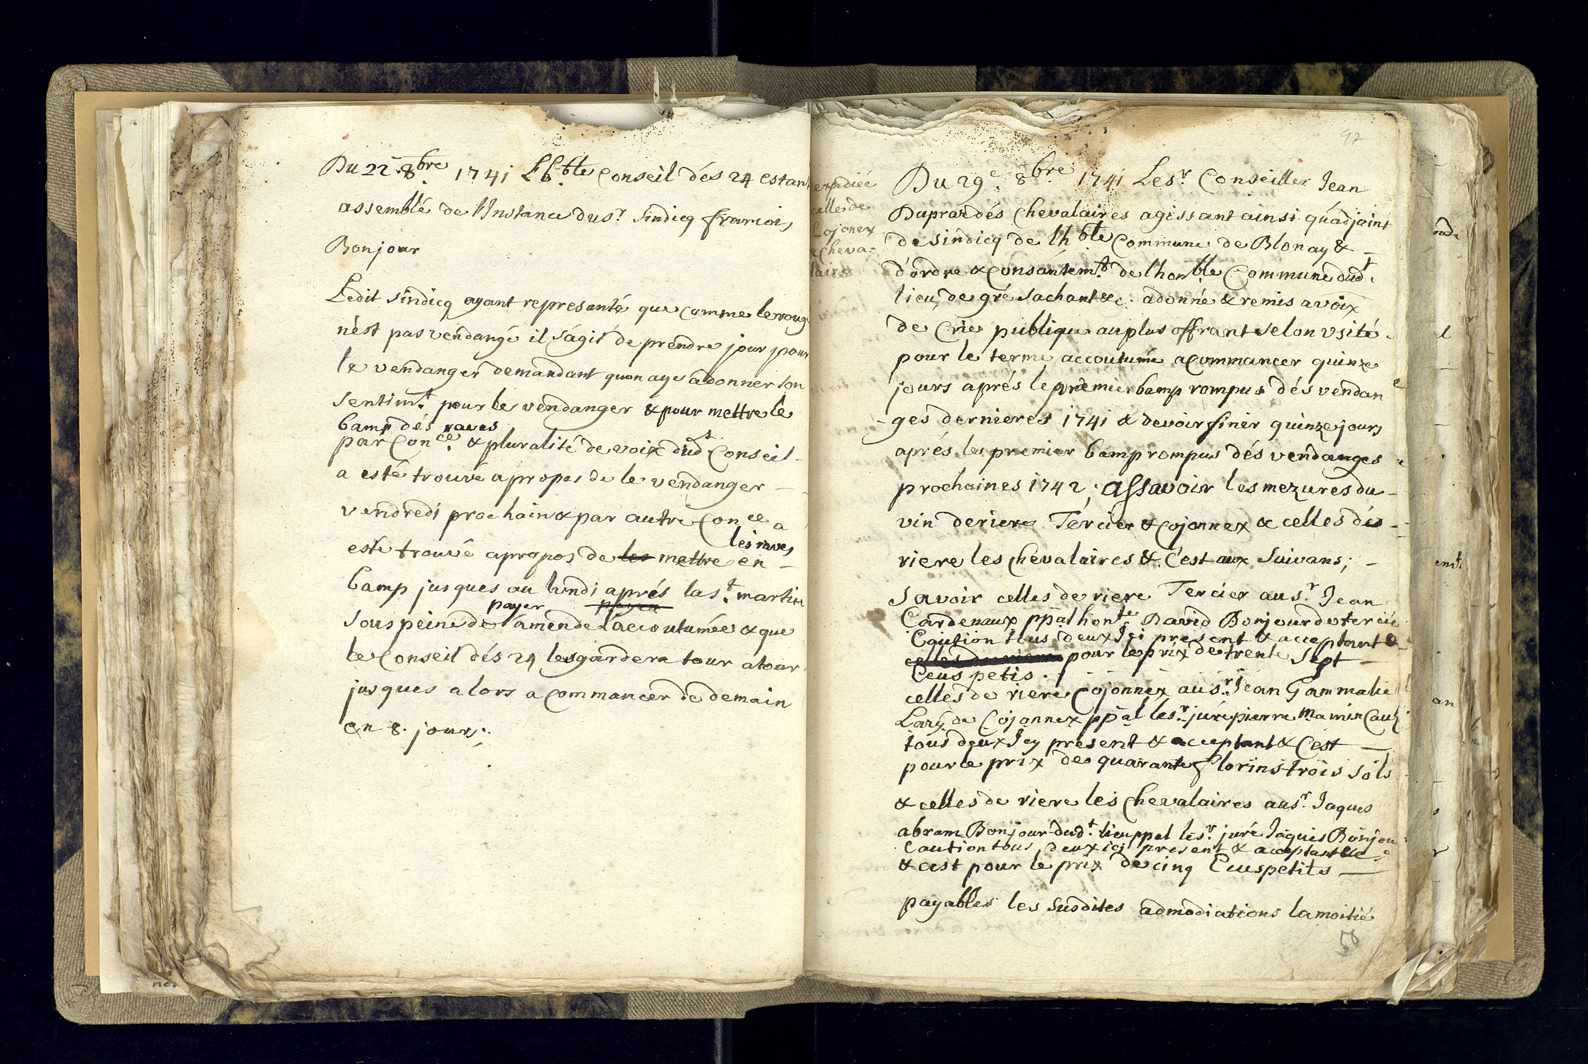 Du 22.e 8.bre 1741 L'h.ble Conseil dés 24 estant
assemblé de l'Instance du s.r sindicq francois
Bonjour
Ledit sindicq ayant representé que comme le rouge
n'est pas vendangé il s'agit de prendre jour pour
le vendanger demandant quon aye a donner son
sentim.t pour le vendanger & pour mettre le
bamp dés raves
par Con.ce & pluralité de voix dud.t Conseil
a esté trouvé apropos de le vendanger
vendredi prochain & par autre Con.ce a
les raves
esté trouvé apropos de les mettre en
bamp jusques au lundi aprés la s.t martin
payer
sous peine de l'amende l'accoutumée & que
le Conseil dés 24 les gardera tour a tour
jusques alors a commancer de demain
en 8. jours.
92
expediée
celle de
Cojonnex
& cheva-
laires
Du 29.e 8.bre 1741 Le s.r Conseiller Jean
Dupraz dés Chevalaires agissant ainsi qu'adjoint
de sindicq de l'h.ble Commune de Blonay &
d'ordre & consantem.t de l'honble Commune dud.t
lieu, de gré sachant &c. a donné & remis a voix
de Crie publique au plus offrant selon usité
pour le terme accoutumé a commancer quinze
jours aprés le premier bamp rompus dés vendan
ges dernieres 1741 & devoir finir quinze jours
aprés les premier bamp rompus dés vendanges
prochaines 1742, assavoir les mezures du
vin deriere Tercier & Cojonnex & celles dés
riere les chevalaires &. C'est aux suivans;
Savoir celles de riere Tercier au s.r Jean
Cardenaux ppal hon.te David Bonjour de tercier
Caution tous deux Ici present & acceptant &
celles de riere pour le prix de trente Sept
Ecus petis.
celles de riere Cojonnex au s.r Jean Gammaliel
Lary de Cojonnex ppal le s.r juré pierre Mamin Cauti
tous deux Icy present & acceptant & C'est
pour le prix de quarante florins trois sols
& celles de riere les Chevalaires au s.r Jaques
abram Bonjour dud.t lieu ppal le s.r juré Jaques Bonjour
caution tous deux ici present & acceptant &c
& c'est pour le prix de cinq Ecus petits
payables les susdites admodiations la moitié